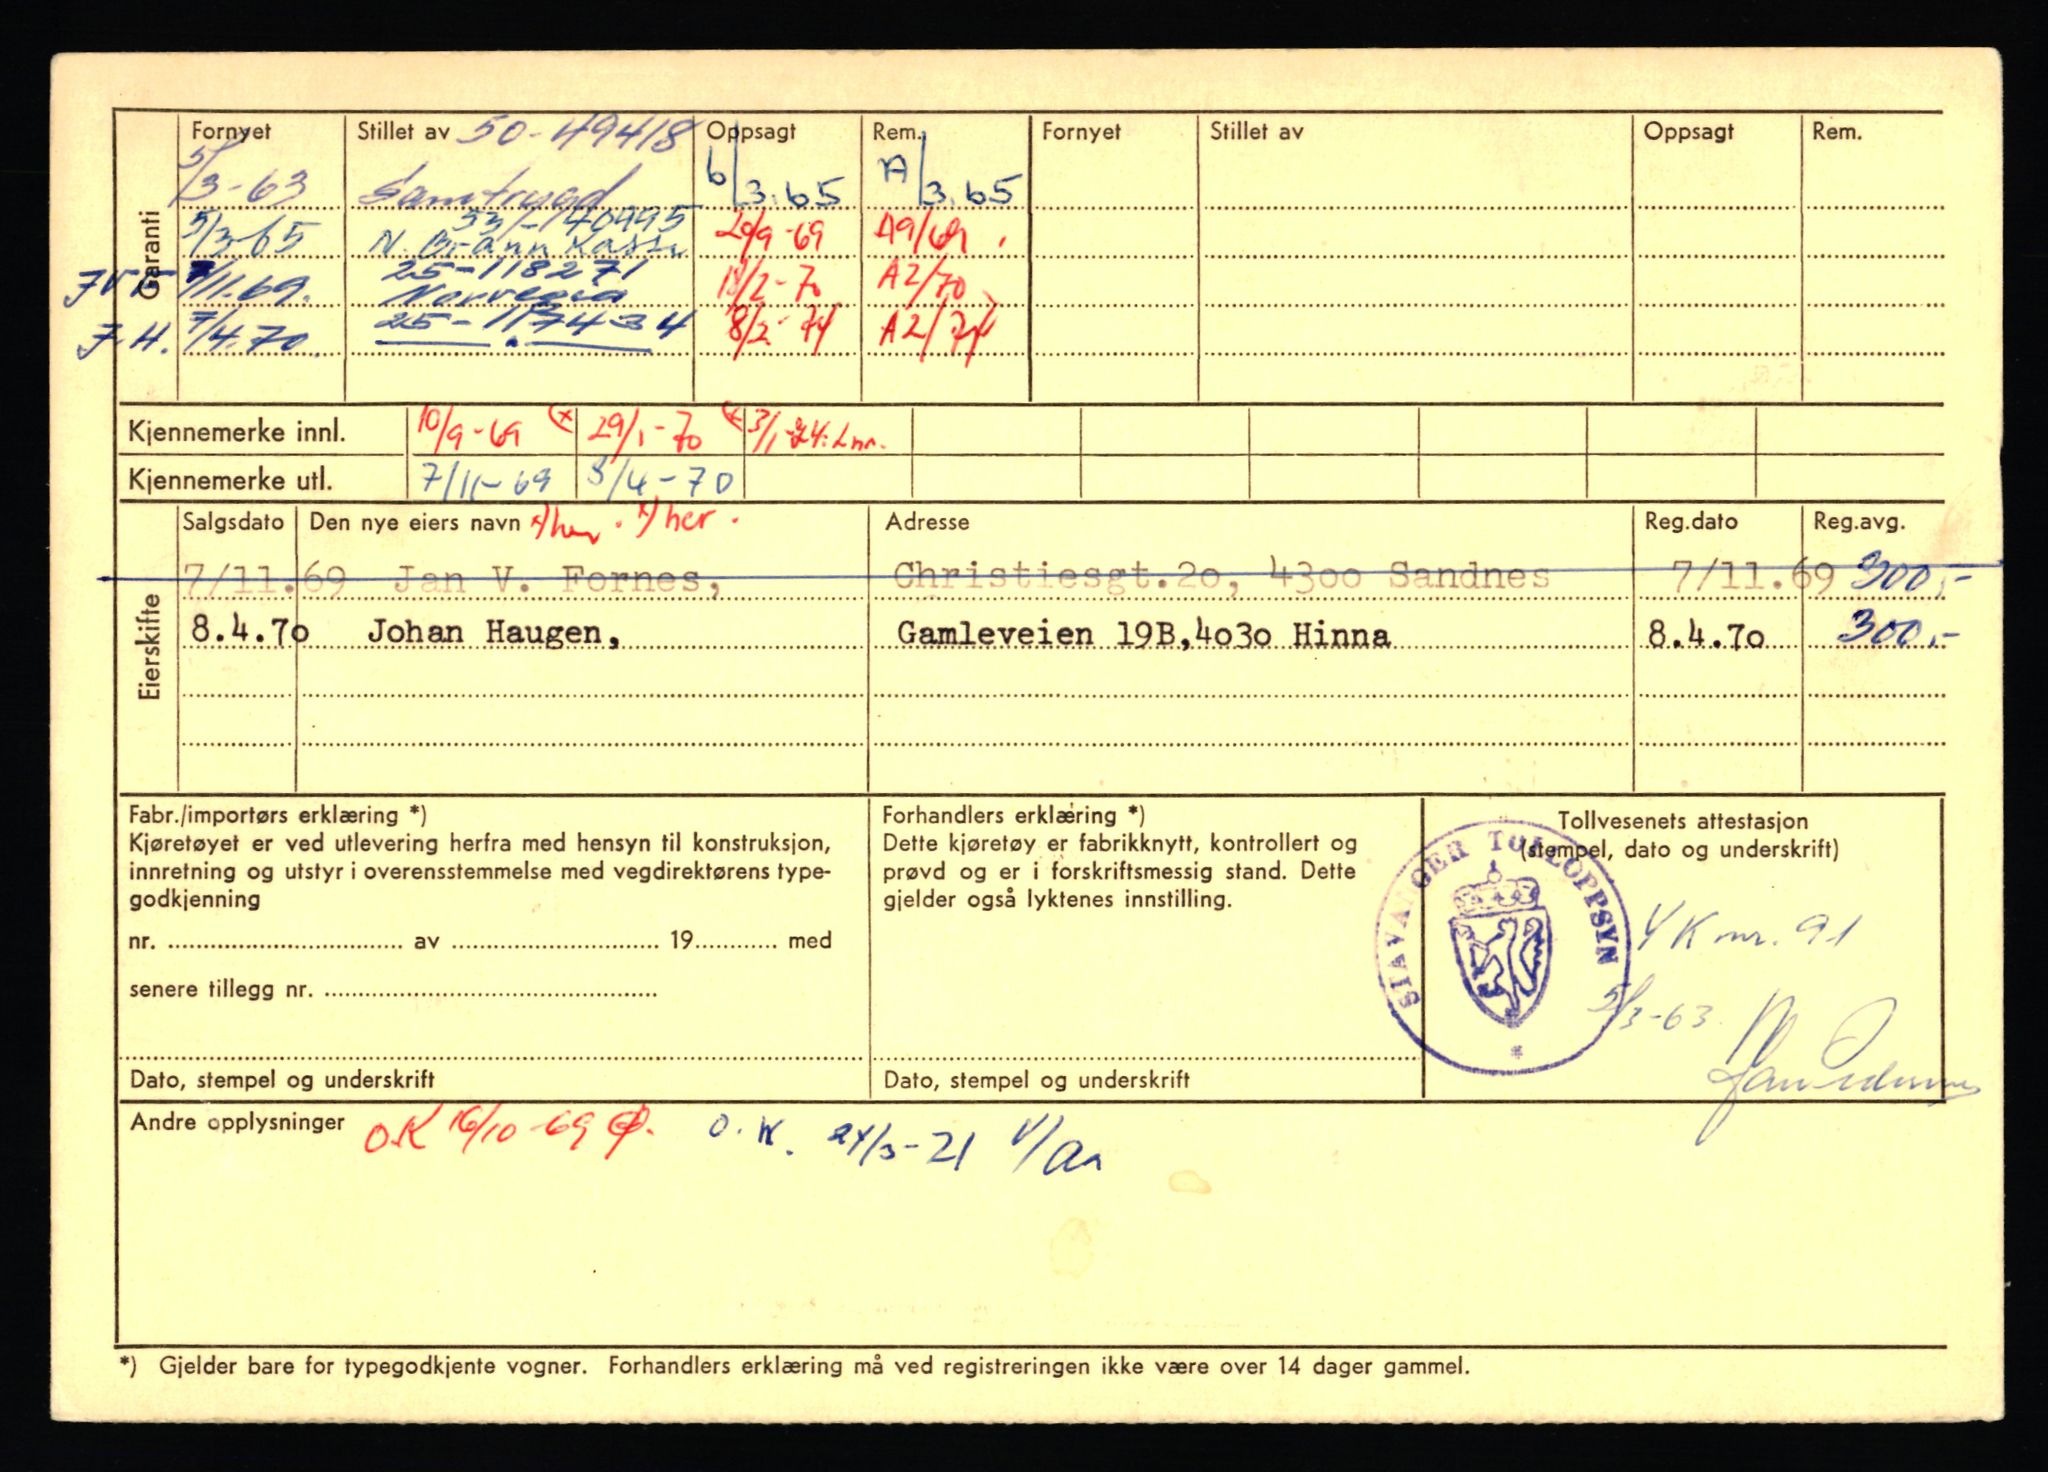 Garanti
Fornyet Stillet av 50-49418 Oppsagt Rem. Fornyet Stillet av Oppsagt Rem.
5/3-63 Samtrygd 6/3.65 A/3.65
53/-40995
5/3-65 N. Brannkasse 20/9-69 A9/69.
25-118271
7/11.69. Norvegia 18/2-70 A2/70
J.H. 7/4.70. 25-117434 8/2-74 A2/74
Kjennemerke innl. 10/9-69 (x 29/1-70 (x 3/1-74.
Kjennemerke utl. 7/11-69 8/4-70
Eierskifte
Salgsdato Den nye eiers navn x) her. x) her. Adresse Reg.dato Reg.avg.
7/11.69 Jan V. Fornes, Christiesgt.2o, 43oo Sandnes 7/11.69 300,-
8.4.7o Johan Haugen, Gamleveien 19B,4o3o Hinna 8.4.7o 300,-
Fabr./importørs erklæring *)
Kjøretøyet er ved utlevering herfra med hensyn til konstruksjon,
innretning og utstyr i overensstemmelse med vegdirektørens type-
godkjenning
nr. av 19 med
senere tillegg nr.
Dato, stempel og underskrift
Forhandlers erklæring *)
Dette kjøretøy er fabrikknytt, kontrollert og
prøvd og er i forskriftsmessig stand. Dette
gjelder også lyktenes innstilling.
Dato, stempel og underskrift
Tollvesenets attestasjon
(stempel, dato og underskrift)
STAVANGER TOLLOPPSYN
K nr. 91
5/3-63.
Andre opplysninger O.K 16/10-69 O.K. 24/3-71
*) Gjelder bare for typegodkjente vogner. Forhandlers erklæring må ved registreringen ikke være over 14 dager gammel.